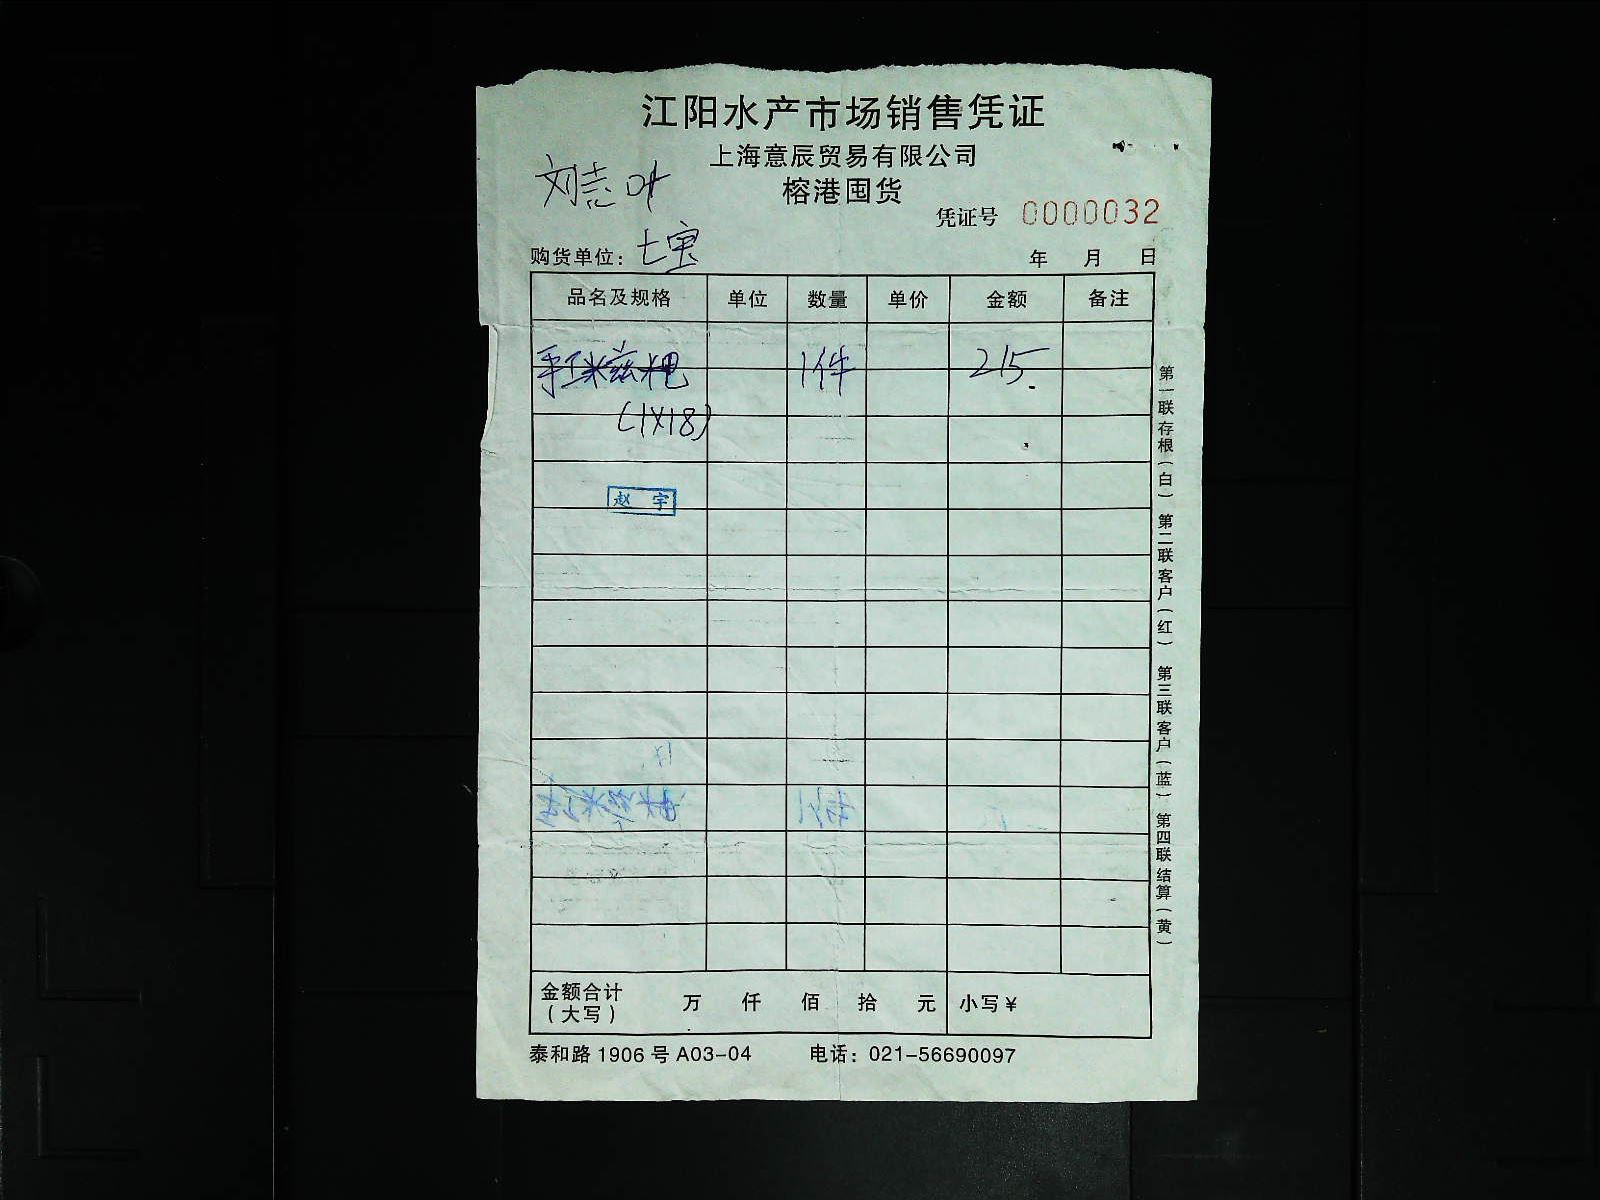 江阳水产市场销售凭证
上海意辰贸易有限公司
榕港囤货
刘志
凭证号 0000032
购货单位：七宝 年 月 日
品名及规格 单位 数量 单价 金额 备注
手工糍粑 1件 215.
(1×18)
赵宇
金额合计（大写） 万 仟 佰 拾 元 小写￥
泰和路1906号A03-04 电话：021-56690097
第一联存根（白） 第二联客户（红） 第三联客户（蓝） 第四联结算（黄）